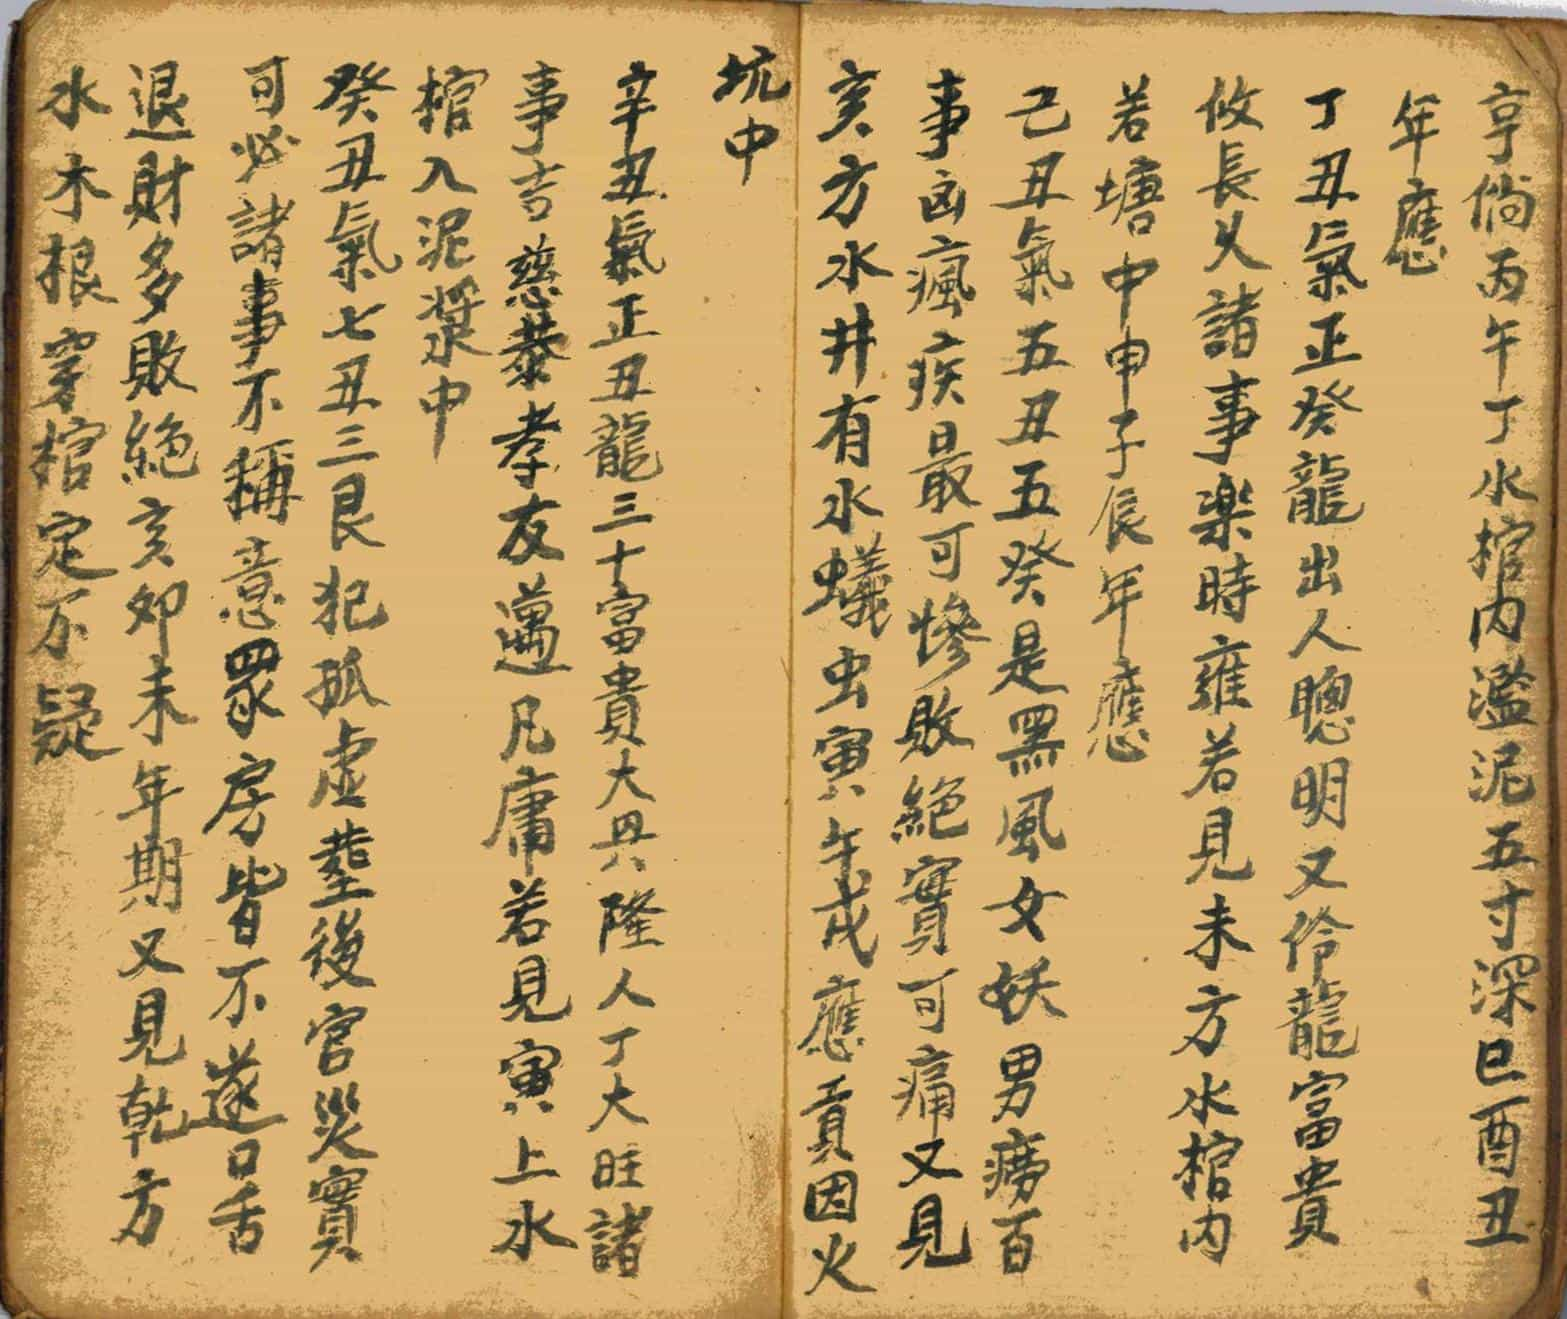 亨倘丙午丁水棺内濫泥五寸深巳酉丑
年應
丁丑氣正癸龍出人聰明又伶龍富貴
攸長久諸事楽時雍若見未方水棺内
若塘中申子辰年應
己丑氣五丑五癸是黑風女妖男癆百
事凶瘋疾最可慘敗絕實可痛又見
亥方水井有水蟻虫寅午戌應貢因火
坑中
辛丑氣正丑龍三十富貴大興隆人丁大旺諸
事吉慈恭孝友邁凡庸若見寅上水
棺入泥漿中
癸丑氣七丑三艮犯孤虛塟後官災實
可必諸事不稱意眾房皆不遂口舌
退財多敗絕亥卯未年期又見乾方
水木根穿棺定不疑